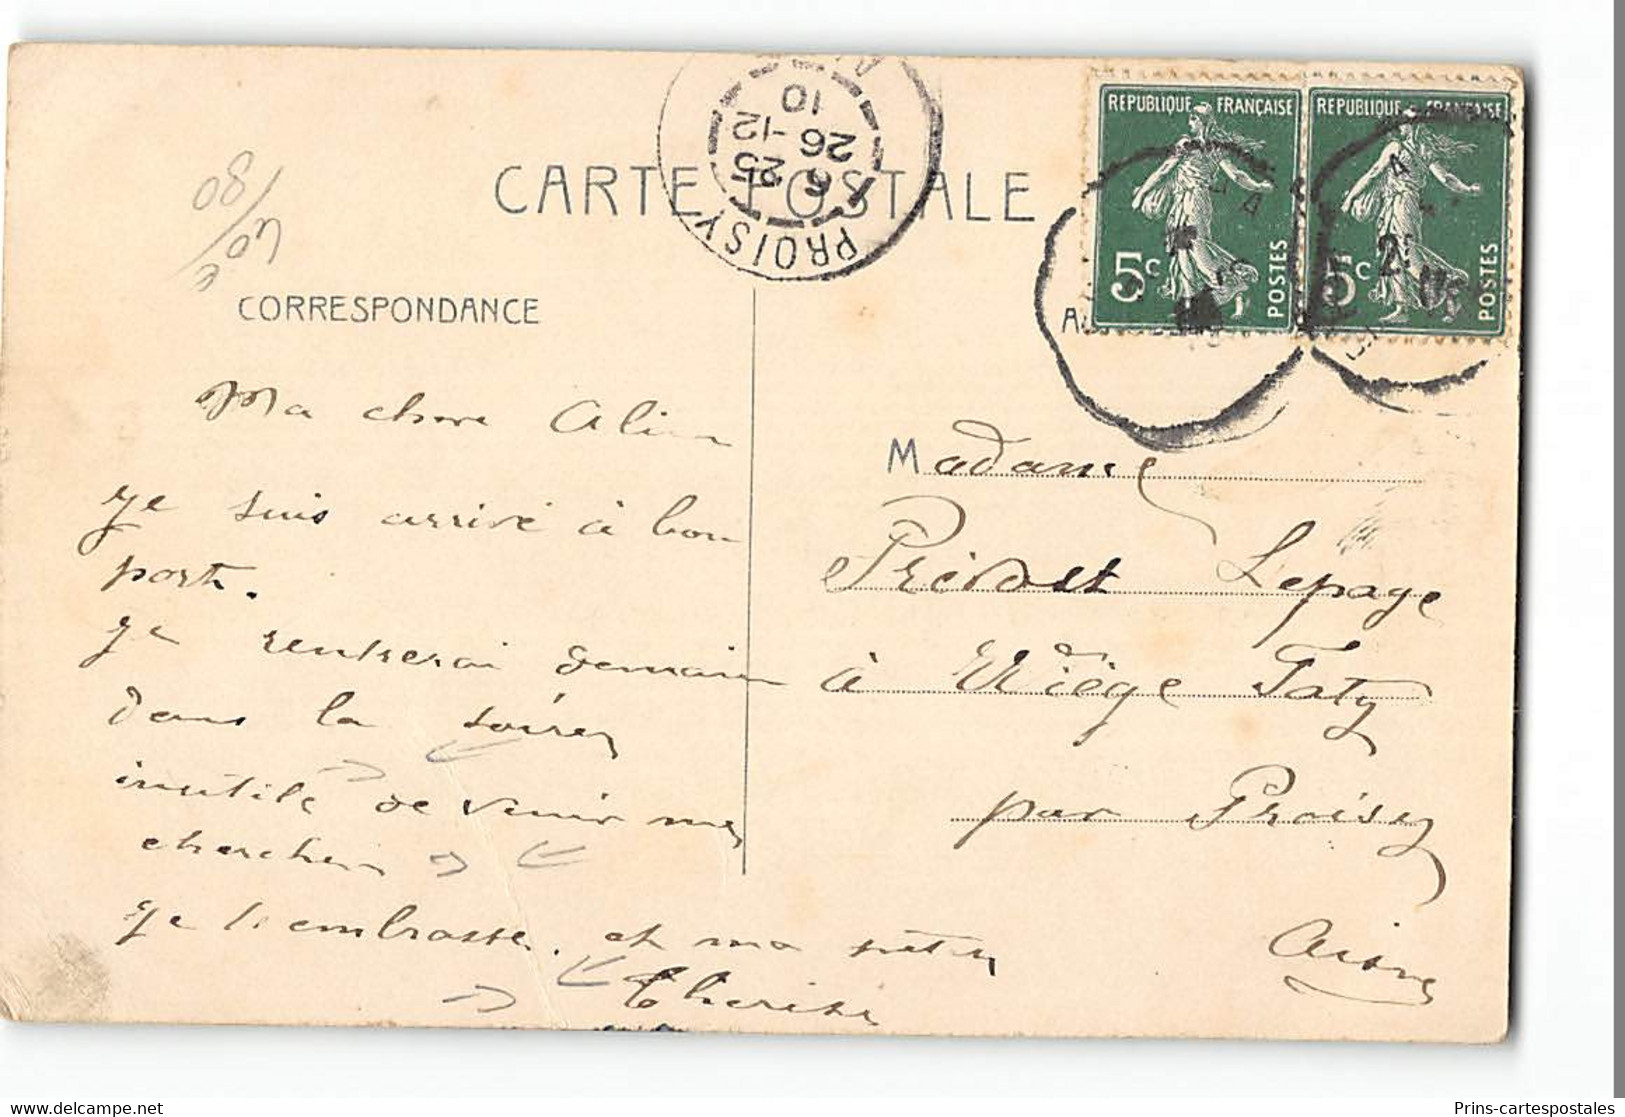 CARTE POSTALE
PROISY
6 25
26 -12
10
REPUBLIQUE FRANÇAISE
5c
POSTES
REPUBLIQUE FRANÇAISE
5c
POSTES
CORRESPONDANCE
Ma chere Aline
Je suis arrivé à bon
port.
Je rentrerai demain
dans la soirée
inutile de venir me
chercher
Je t'embrasse et ma
Madame
Prévost Lepage
à Wiège Faty
par Proisy
Aisne
www.delcampe.net
Prins-cartespostales